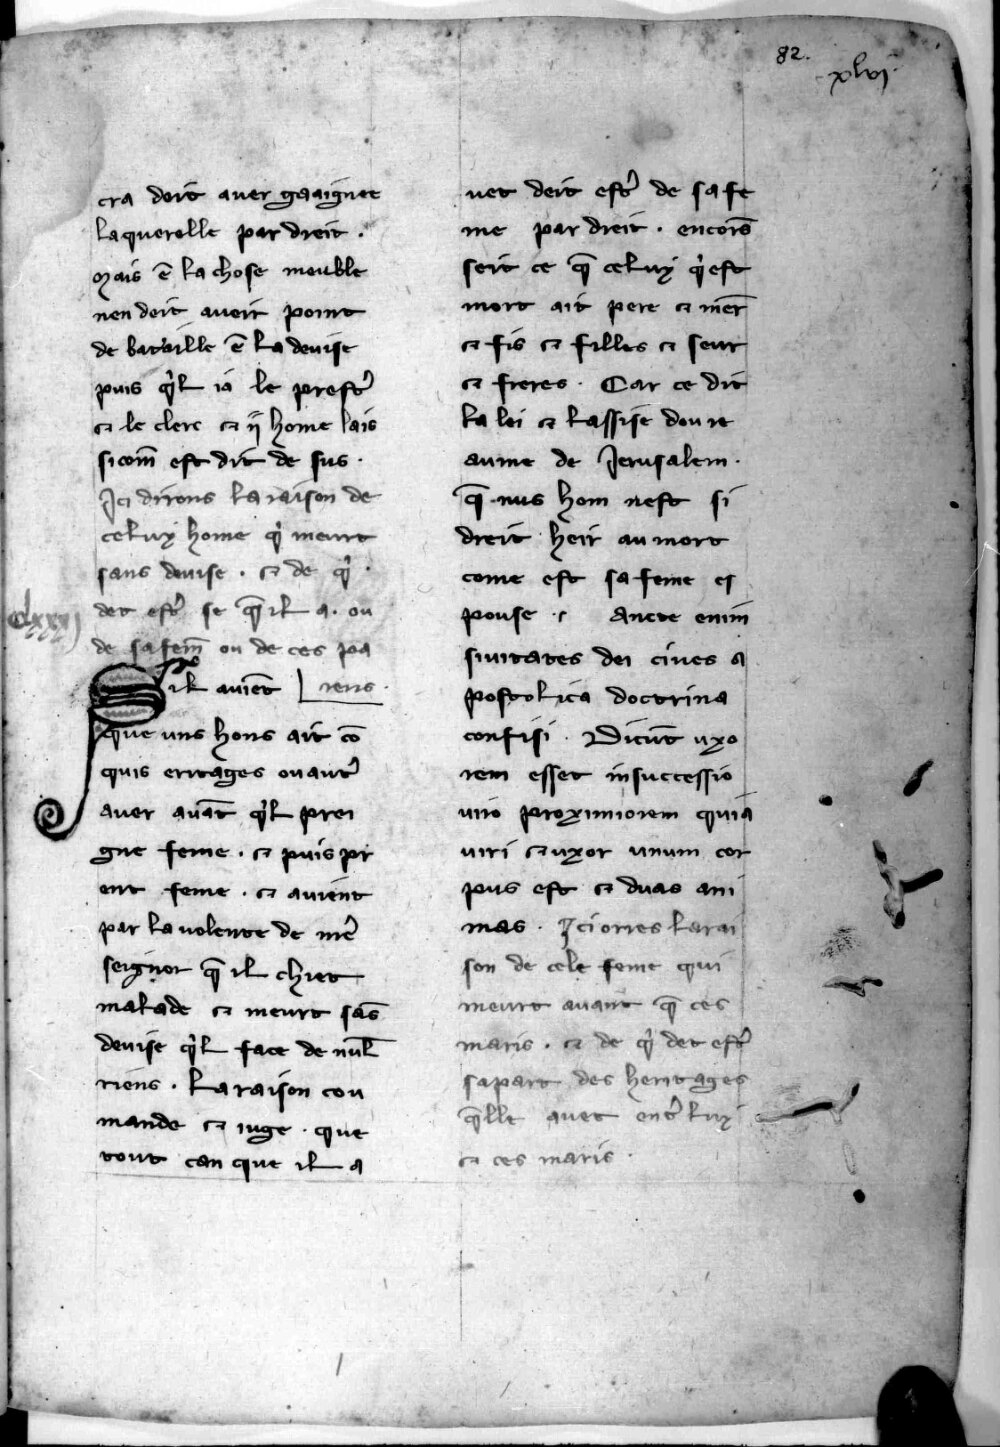 82.
xlvi.
cra doit auer gaaignee
laquerelle par dreit .
Mais ē la chose meuble
nen deit aueir point
de bataille ē la deuise
puis q̓l ia le prestr̓
⁊ le clerc ⁊ ij home lais
sicom̄ est dit de sus .
Ici dirons la raison de
celuy home q̓ meurt
sans deuise . ⁊ de q̓ .
det estr̓ se q̄ il a . ou
clxxxj
de sa fem̄ ou de ces pa
rens .
Sil auiēt
que uns hons ait cō
quis eritages ou autr̓
auer auāt q̓l prei
gne feme . ⁊ puis pr
ent feme . ⁊ auient
par la uolente de nr̄e
seignor q̄ il chiet
malade ⁊ meurt sās
deuise q̓l face de nul
riens . La raison cou
mande ⁊ iuge . que
tout can que il a
uet deit estr̓ de sa fe
me par dreit . encors̄
seit ce q̄ celuy q̓ est
mort ait pere ⁊ mer̄
⁊ fis ⁊ filles ⁊ seur
⁊ freres . Car ce dit
la lei ⁊ lassise dou re
aume de Jerusalem .
q̄ nus hom nest si
dreit heir au mort
come est sa feme es
pouse . ancte enim
siuitates dei ciues a
postolica doctrina
confisi . Dicūt uxo
rem esset insuccessio
uiro proximiorem quia
uiri ⁊ uxor unum cor
pus est ⁊ duas ani
mas . Yci orres la rai
son de cele feme qui
meurt auant q̄ ces
maris . ⁊ de q̓ det estr̓
sa part des heritages
q̄lle auet entr̓ luy
⁊ ces maris .